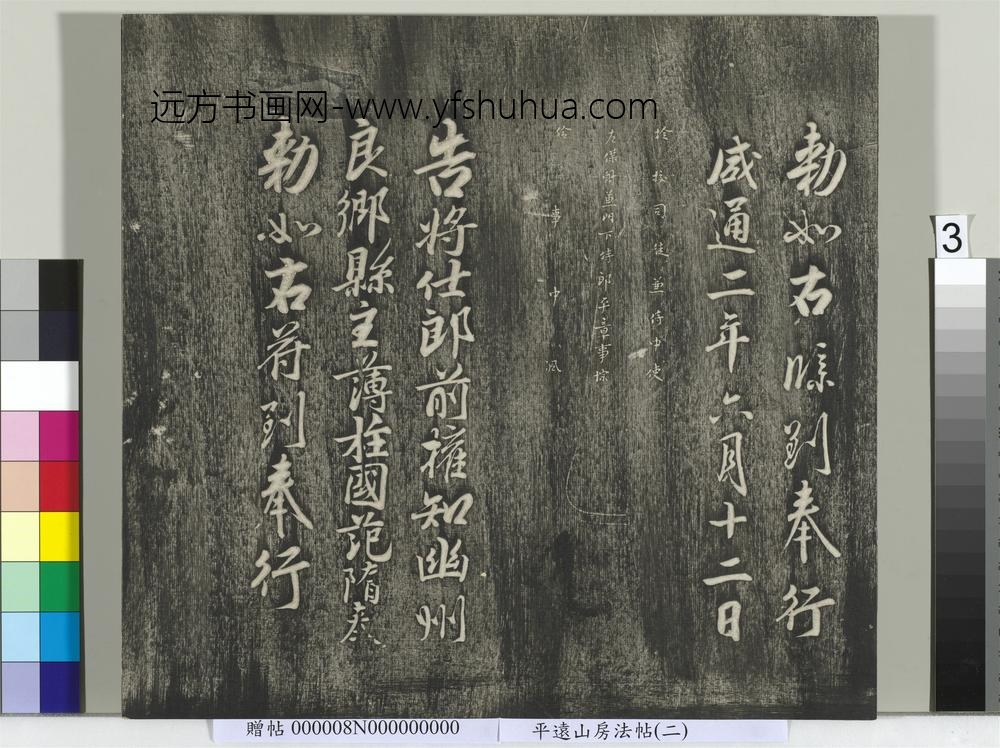 远方书画网-www.yfshuhua.com
勅如右牒到奉行
咸通二年六月十二日
檢校司徒兼侍中使
兼門下侍郎平章事悰
給事中
告將仕郎前權知幽州
良鄉縣主薄柱國范隋奉
勅如右符到奉行
3
贈帖 000008N000000000
平遠山房法帖(二)